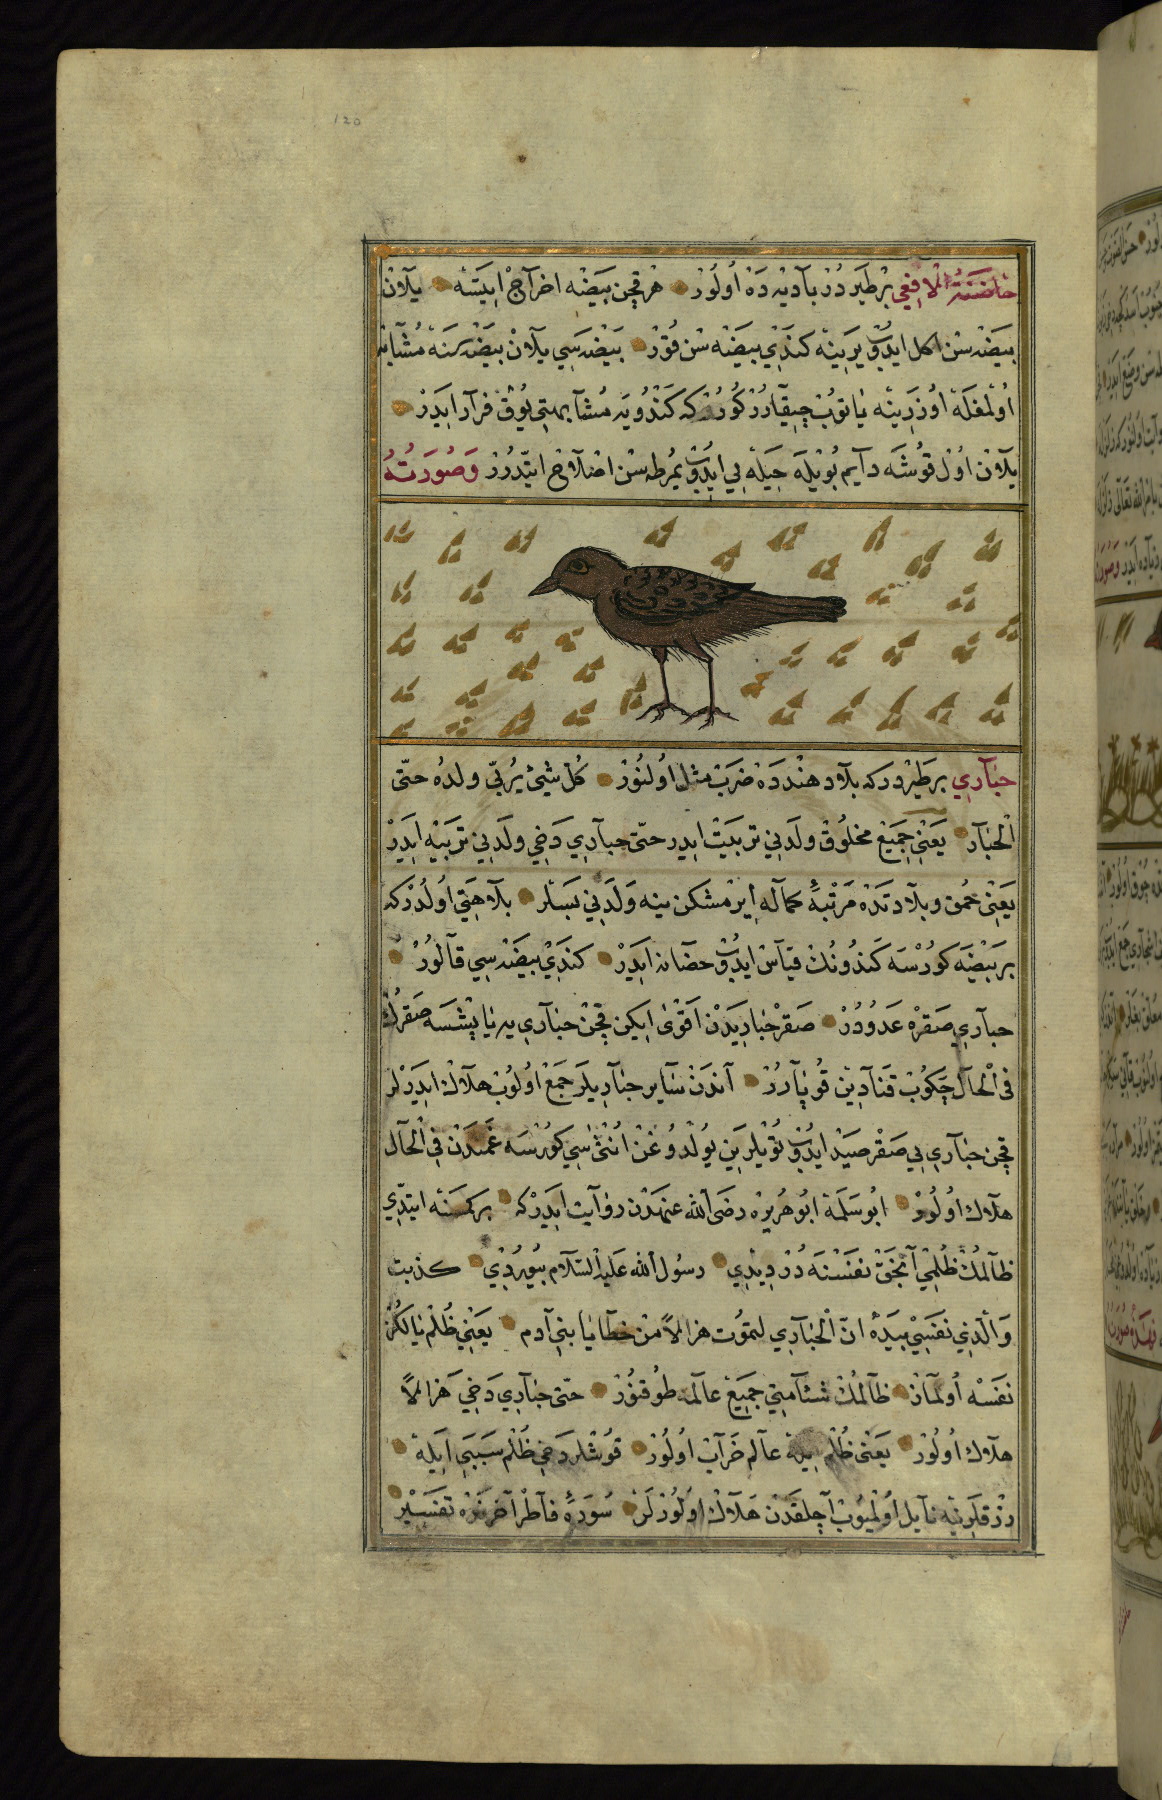 120
حاضنة الافعي برطيردر باديه ده اولور هر قچن بيضه اخراج ايتسه يلان
بيضه سن اكل ايدوب يرينه كندي بيضه سن قور بيضه سي يلان بيضه سنه مشابه
اولمغله اوزرينه ياتوب چيقارر كوررکه كندويه مشابهتي يوق فرار ايدر
يلان اول قوشه دايم بويله حيله بي ايدوب يمرطه سن اضلاع ايتدرر وصورته
حباري برطيردركه بلاد هندده ضرب مثل اولنور كل شيئ يربي ولده حتى
الحبار يعني جميع مخلوق ولدني تربيت ايدر حتى حباري دخي ولدني تربيه ايدر
يعني حمق وبلادتده مرتبهٔ كماله ايرمشكن ينه ولدني بسلر بلاهتي اولدركه
بر بيضه كورسه كندونك قياس ايدوب حضانه ايدر كندي بيضه سي قالور
حباري صقره عدودر صقر حباريدن اقوى ايكن قچن حباري يه ياپشسه صقرك
في الحال چكوب قنادين قوپارر اندن ساير حباريلر جمع اولوب هلاك ايدرلر
قچن حباري يي صقر صيد ايدوب تويلرين يولدوغن انثى سي كورسه غمندن في الحال
هلاك اولور ابو سلمة ابو هريره رضى الله عنهدن روايت ايدركه بر كمسنه ايتدي
ظالمك ظلمي انجق نفسنه در ديدي رسول الله عليه السلام بيوردي كذبت
والذي نفسي بيده ان الحباري لتموت هزالا من خطايا بني آدم يعني ظلم يالكز
نفسه اولماز ظالمك شئامتي جميع عالمه طوقنور حتى حباري دخي هزالا
هلاك اولور يعنى ظلم ايله عالم خراب اولور قوشلر دخي ظلم سببي ايله
رزقلرينه نايل اولميوب اچلقدن هلاك اولورلر سورهٔ فاطر اخرنده تفسير